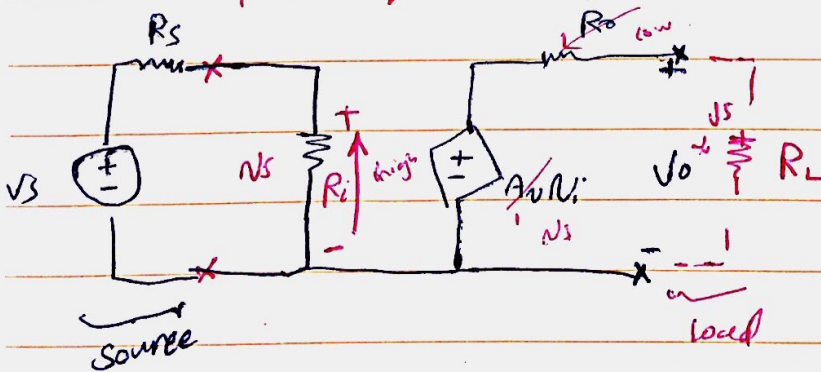 Rs
Ro
low
+
+
+
-
Vs
Vs
Ri
high
+
-
Av Vi
1
Vs
Vo
+
Vs
RL
-
-
source
Load